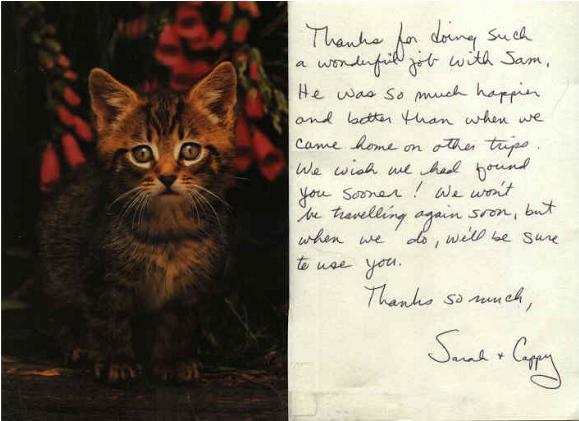 Thanks for doing such
a wonderful job with Sam.
He was so much happier
and better than when we
came home on other trips.
We wish we had found
you sooner! We won't
be travelling again soon, but
when we do, we'll be sure
to use you.
Thanks so much,
Sarah + Cappy